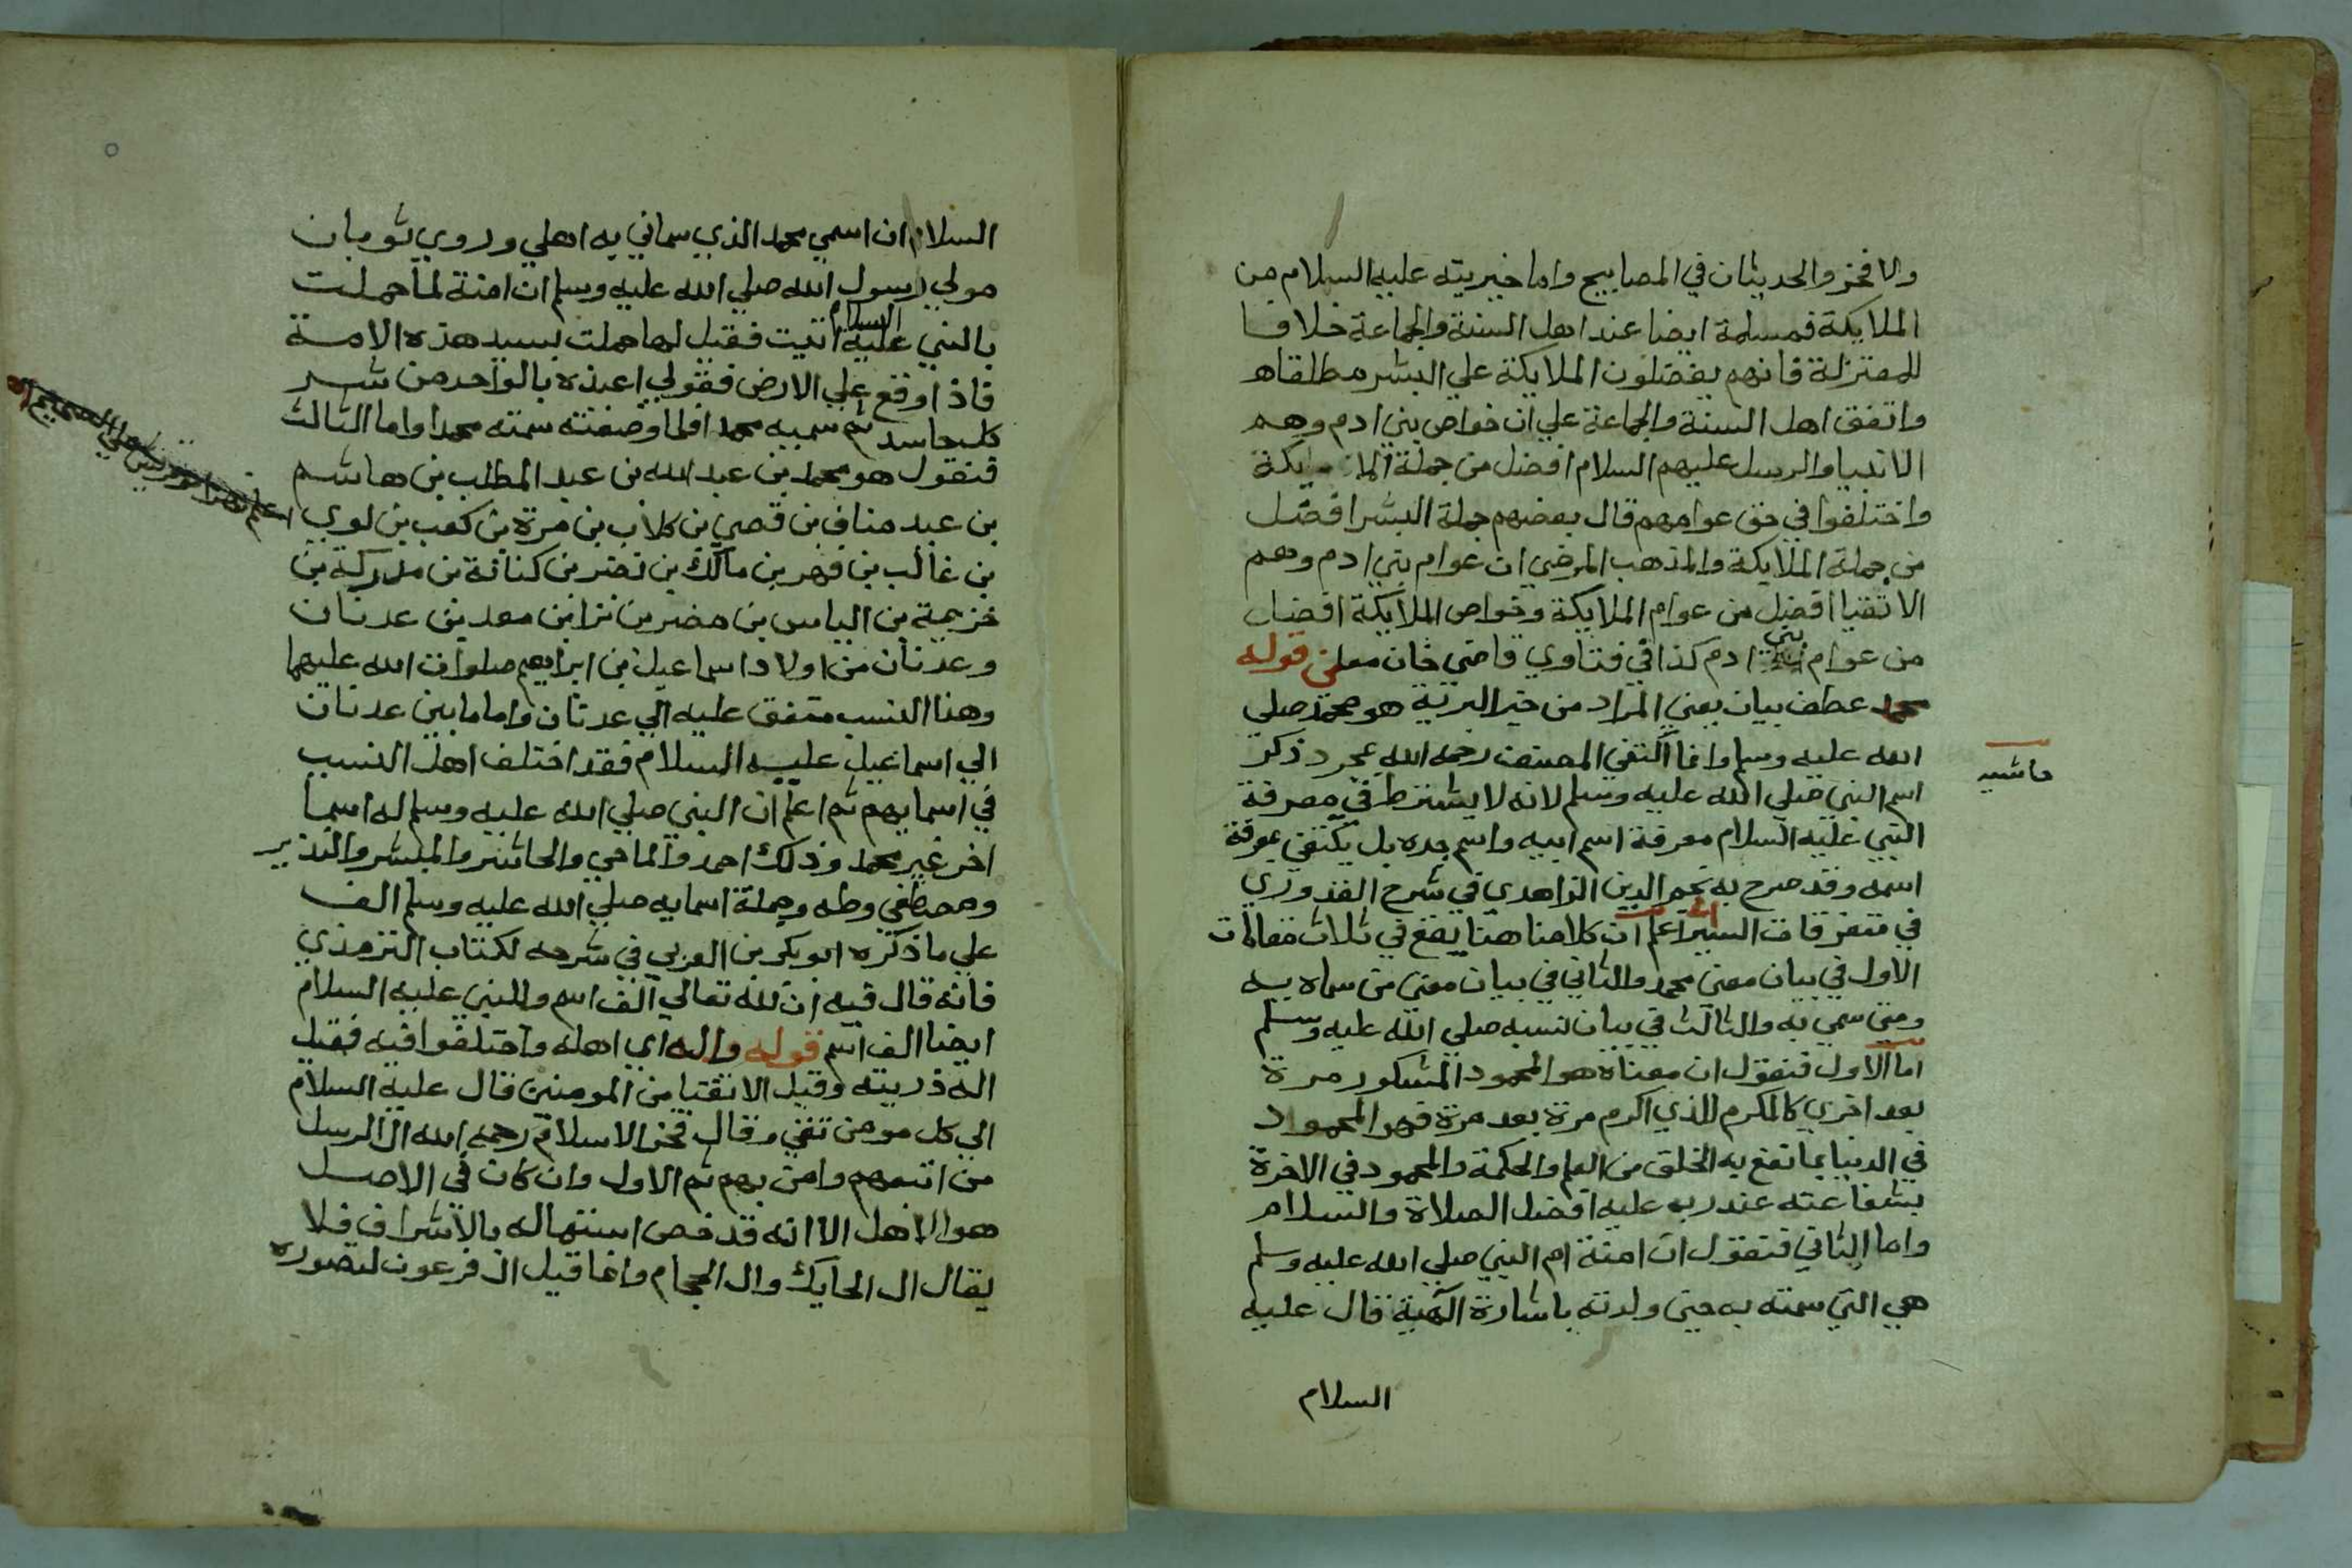 ولا فخر والحديثان في المصابيح واما خيريته عليه السلام من
الملايكة فمسلمة ايضا عند اهل السنة والجماعة خلافا
للمعتزلة فانهم يفضلون الملايكة علي البشر مطلقاه
واتفق اهل السنة والجماعة علي ان خواص بني ادم وهم
الانبيا والرسل عليهم السلام افضل من جملة الملايكة
واختلفوا في حق عوامهم قال بعضهم جملة البشر افضل
من جملة الملايكة والمذهب المرضي ان عوام بني ادم وهم
الاتقيا افضل من عوام الملايكة وخواص الملايكة افضل
من عوام بني ادم كذا في فتاوي قاضي خان قوله
محمد عطف بيان يعني المراد من خير البرية هو محمد صلي
الله عليه وسلم وانما اكتفي المصنف رحمه الله بمجرد ذكر
حاشيه
اسم النبي صلي الله عليه وسلم لانه لا يشترط في معرفة
النبي عليه السلام معرفة اسم ابيه واسم جده بل يكتفي بمعرفة
اسمه وقد صرح به نجم الدين الزاهدي في شرح القدوري
في متفرقات السير اعلم ان كلامنا هنا يقع في ثلاث مقالات
الاول في بيان معني محمد والثاني في بيان معني من سماه به
ومتي سمي به والثالث في بيان نسبه صلي الله عليه وسلم
اما الاول فنقول ان معناه هو المحمود المشكور مرة
بعد اخري كالمكرم للذي اكرم مرة بعد مرة فهو المحمود
في الدنيا بما نفع به الخلق من العلم والحكمة والمحمود في الاخرة
بشفاعته عند ربه عليه افضل الصلاة والسلام
واما الثاني فنقول ان امنة ام النبي صلي الله عليه وسلم
هي التي سمته به حين ولدته باشارة الهية قال عليه
السلام
السلام ان اسمي محمد الذي سماني به اهلي وروي ثوبان
مولي رسول الله صلي الله عليه وسلم ان امنة لما حملت
بالنبي عليه السلام اتيت فقيل لها حملت بسيد هذه الامة
فاذا وقع علي الارض فقولي اعيذه بالواحد من شر
كل حاسد ثم سميه محمد افلما وضعته سمته محمدا واما الثالث
فنقول هو محمد بن عبد الله بن عبد المطلب بن هاشم
بن عبد مناف بن قصي بن كلاب بن مرة بن كعب بن لوي
بن غالب بن فهر بن مالك بن نضر بن كنانة بن مدركة بن
خزيمة بن الياس بن مضر بن نزا بن معد بن عدنان
وعدنان من اولاد اسماعيل بن ابراهيم صلوات الله عليهما
وهذا النسب متفق عليه الي عدنان واما ما بين عدنان
الي اسماعيل عليه السلام فقد اختلف اهل النسب
في اسمايهم ثم اعلم ان النبي صلي الله عليه وسلم له اسما
اخر غير محمد وذلك احمد والماحي والحاشر والمبشر والنذير
ومصطفي وطه وجملة اسمايه صلي الله عليه وسلم الف
علي ما ذكره ابو بكر بن العربي في شرحه لكتاب الترمذي
فانه قال فيه ان لله تعالي الف اسم وللنبي عليه السلام
ايضا الف اسم قوله واله اي اهله واختلفوا فيه فقيل
اله ذريته وقيل الاتقيا من المومنين قال عليه السلام
الي كل مومن تقي وقال فخر الاسلام رحمه الله ال الرسل
من اتبعهم وامن بهم ثم الاول وان كان في الاصل
هو الاهل الا انه قد خص استنهاله بالاشراف فلا
يقال ال الحايك وال الحجام وانما قيل ال فرعون لتصوره